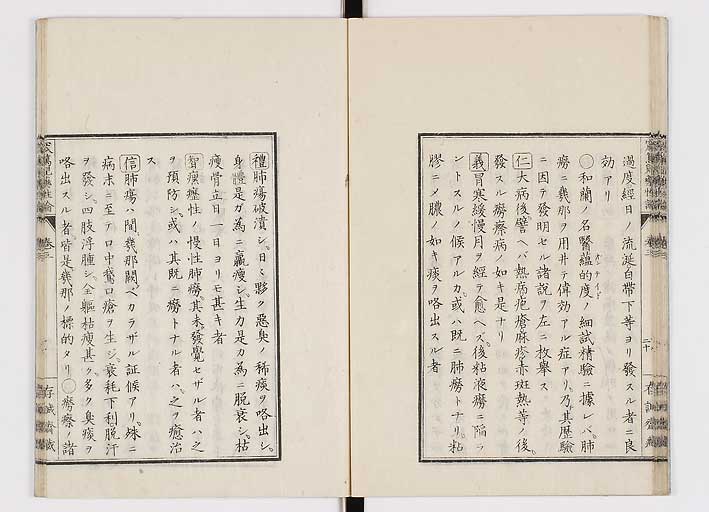 過度經日ノ流涎白帶下等ヨリ發スル者ニ良
効アリ
○和蘭ノ名醫蘊的度ノ細試精驗ニ據レバ肺
オンテイド
癆ニ幾那ヲ用井テ偉効アル症アリ。乃其歷驗
ニ因テ發明セル諸説ヲ左ニ枚擧ス
仁大病後譬ヘバ熱病疱瘡麻疹赤斑熱等ノ後。
發スル癆瘵病ノ如キ是ナリ
義冒寒緩慢月ヲ經テ愈ヘズ。後粘液癆ニ陥ラ
ントスルノ候アルカ。或ハ既ニ肺癆トナリ。粘
膠ニメ膿ノ如キ痰ヲ咯出スル者
禮肺瘍破潰シ。日々夥ク惡臭ノ稀痰ヲ咯出シ。
身體是ガ為ニ羸瘦シ。生力是カ為ニ脱衰シ。枯
瘦骨立日一日ヨリモ甚キ者
智瘰癧性ノ慢性肺癆。其未發覺セザル者ハ之
ヲ預防シ。或ハ其既ニ癆トナル者ハ。之ヲ癒治
ス
信肺瘍ハ閒幾那闕ベカラザル証候アリ。殊ニ
病末ニ至テ口中鵞口瘡ヲ生シ。衰耗下利脱汗
ヲ發シ。四肢浮腫シ。全軀枯瘦甚ク多ク臭痰ヲ
咯出スル者皆是幾那ノ標的タリ○癆瘵ノ諸
卷三
存誠齋藏